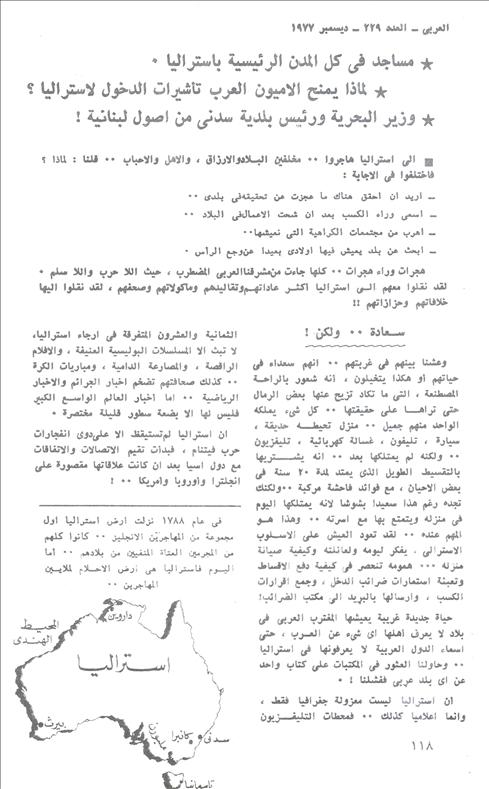 العربى – العدد ٢٢٩ – ديسمبر ١٩٧٧
★ مساجد فى كل المدن الرئيسية باستراليا ٠
★ لماذا يمنح الاميون العرب تأشيرات الدخول لاستراليا ؟
★ وزير البحرية ورئيس بلدية سدنى من اصول لبنانية !
■ الى استراليا هاجروا ٠٠ مغلفين البلاد والارزاق ، والاهل والاحباب ٠٠ قلنا : لماذا ؟
فاختلفوا فى الاجابة :
– اريد ان احقق هناك ما عجزت عن تحقيقه فى بلدى ٠٠
– اسعى وراء الكسب بعد ان شحت الاعمال فى البلاد ٠٠
– اهرب من مجتمعات الكراهية التى نعيشها ٠٠
– ابحث عن بلد يعيش فيها اولادى بعيدا عن وجع الرأس ٠
هجرات وراء هجرات ٠٠ كلها جاءت من شرقنا العربى المضطرب ، حيث اللا حرب واللا سلم ٠
لقد نقلوا معهم الى استراليا اكثر عاداتهم وتقاليدهم وماكولاتهم وصحفهم ، لقد نقلوا اليها
خلافاتهم وحزازاتهم !!
سعادة ٠٠ ولكن !
وعشنا بينهم فى غربتهم ٠٠ انهم سعداء فى
حياتهم او هكذا يتخيلون ، انه شعور بالراحة
المصطنعة ، التى ما تكاد تزيح عنها بعض الرمال
حتى تراها على حقيقتها ٠٠ كل شىء يملكه
الواحد منهم جميل ٠٠ منزل تحيطه حديقة ،
سيارة ، تليفون ، غسالة كهربائية ، تليفزيون
٠٠ ولكنه لم يمتلكها بعد ٠٠ انه يشتريها
بالتقسيط الطويل الذى يمتد لمدة ٢٠ سنة فى
بعض الاحيان ، مع فوائد فاحشة مركبة ٠٠ ولكنك
تجده رغم هذا سعيدا بشوشا لانه يمتلكها اليوم
فى منزله ويتمتع بها مع اسرته ٠٠ وهذا هو
المهم عنده ٠٠ لقد تعود العيش على الاسلوب
الاسترالى . يفكر ليومه ولعائلته وكيفية صيانة
منزله ٠٠٠ همومه تنحصر فى كيفية دفع الاقساط
وتعبئة استمارات ضرائب الدخل ، وجمع اقرارات
الكسب ، وارسالها بالبريد الى مكتب الضرائب!
حياة جديدة غريبة يعيشها المغترب العربى فى
بلاد لا يعرف اهلها اى شىء عن العرب ، حتى
اسماء الدول العربية لا يعرفونها فى استراليا
٠٠ وحاولنا العثور فى المكتبات على كتاب واحد
عن اى بلد عربى ففشلنا ! ٠
ان استراليا ليست معزولة جغرافيا فقط ،
وانما اعلاميا كذلك ٠٠ فمحطات التليفزيون
الثمانية والعشرون المتفرقة فى ارجاء استراليا،
لا تبث الا المسلسلات البوليسية العنيفة ، والافلام
الراقصة ، والمصارعة الدامية ، ومباريات الكرة
٠٠ كذلك صحافتهم تضخم اخبار الجرائم والاخبار
الرياضية ٠٠ اما اخبار العالم الواسع الكبير
فليس لها الا بضعة سطور قليلة مختصرة ٠
ان استراليا لم تستيقظ الا على دوى انفجارات
حرب فيتنام ، فبدات تقيم الاتصالات والاتفاقات
مع دول اسيا بعد ان كانت علاقاتها مقصورة على
انجلترا واوروبا وامريكا ٠٠ !
فى عام ١٧٨٨ نزلت ارض استراليا اول
مجموعة من المهاجرين الانجليز ٠٠ كانوا كلهم
من المجرمين العتاة المنفيين من بلادهم ٠٠ اما
اليوم فاستراليا هى ارض الاحلام لملايين
المهاجرين ٠٠
المحيط
الهندى
داروين
استراليا
بيرث
كانبرا
سدنى
ملبورن
تاسمانيا
١١٨